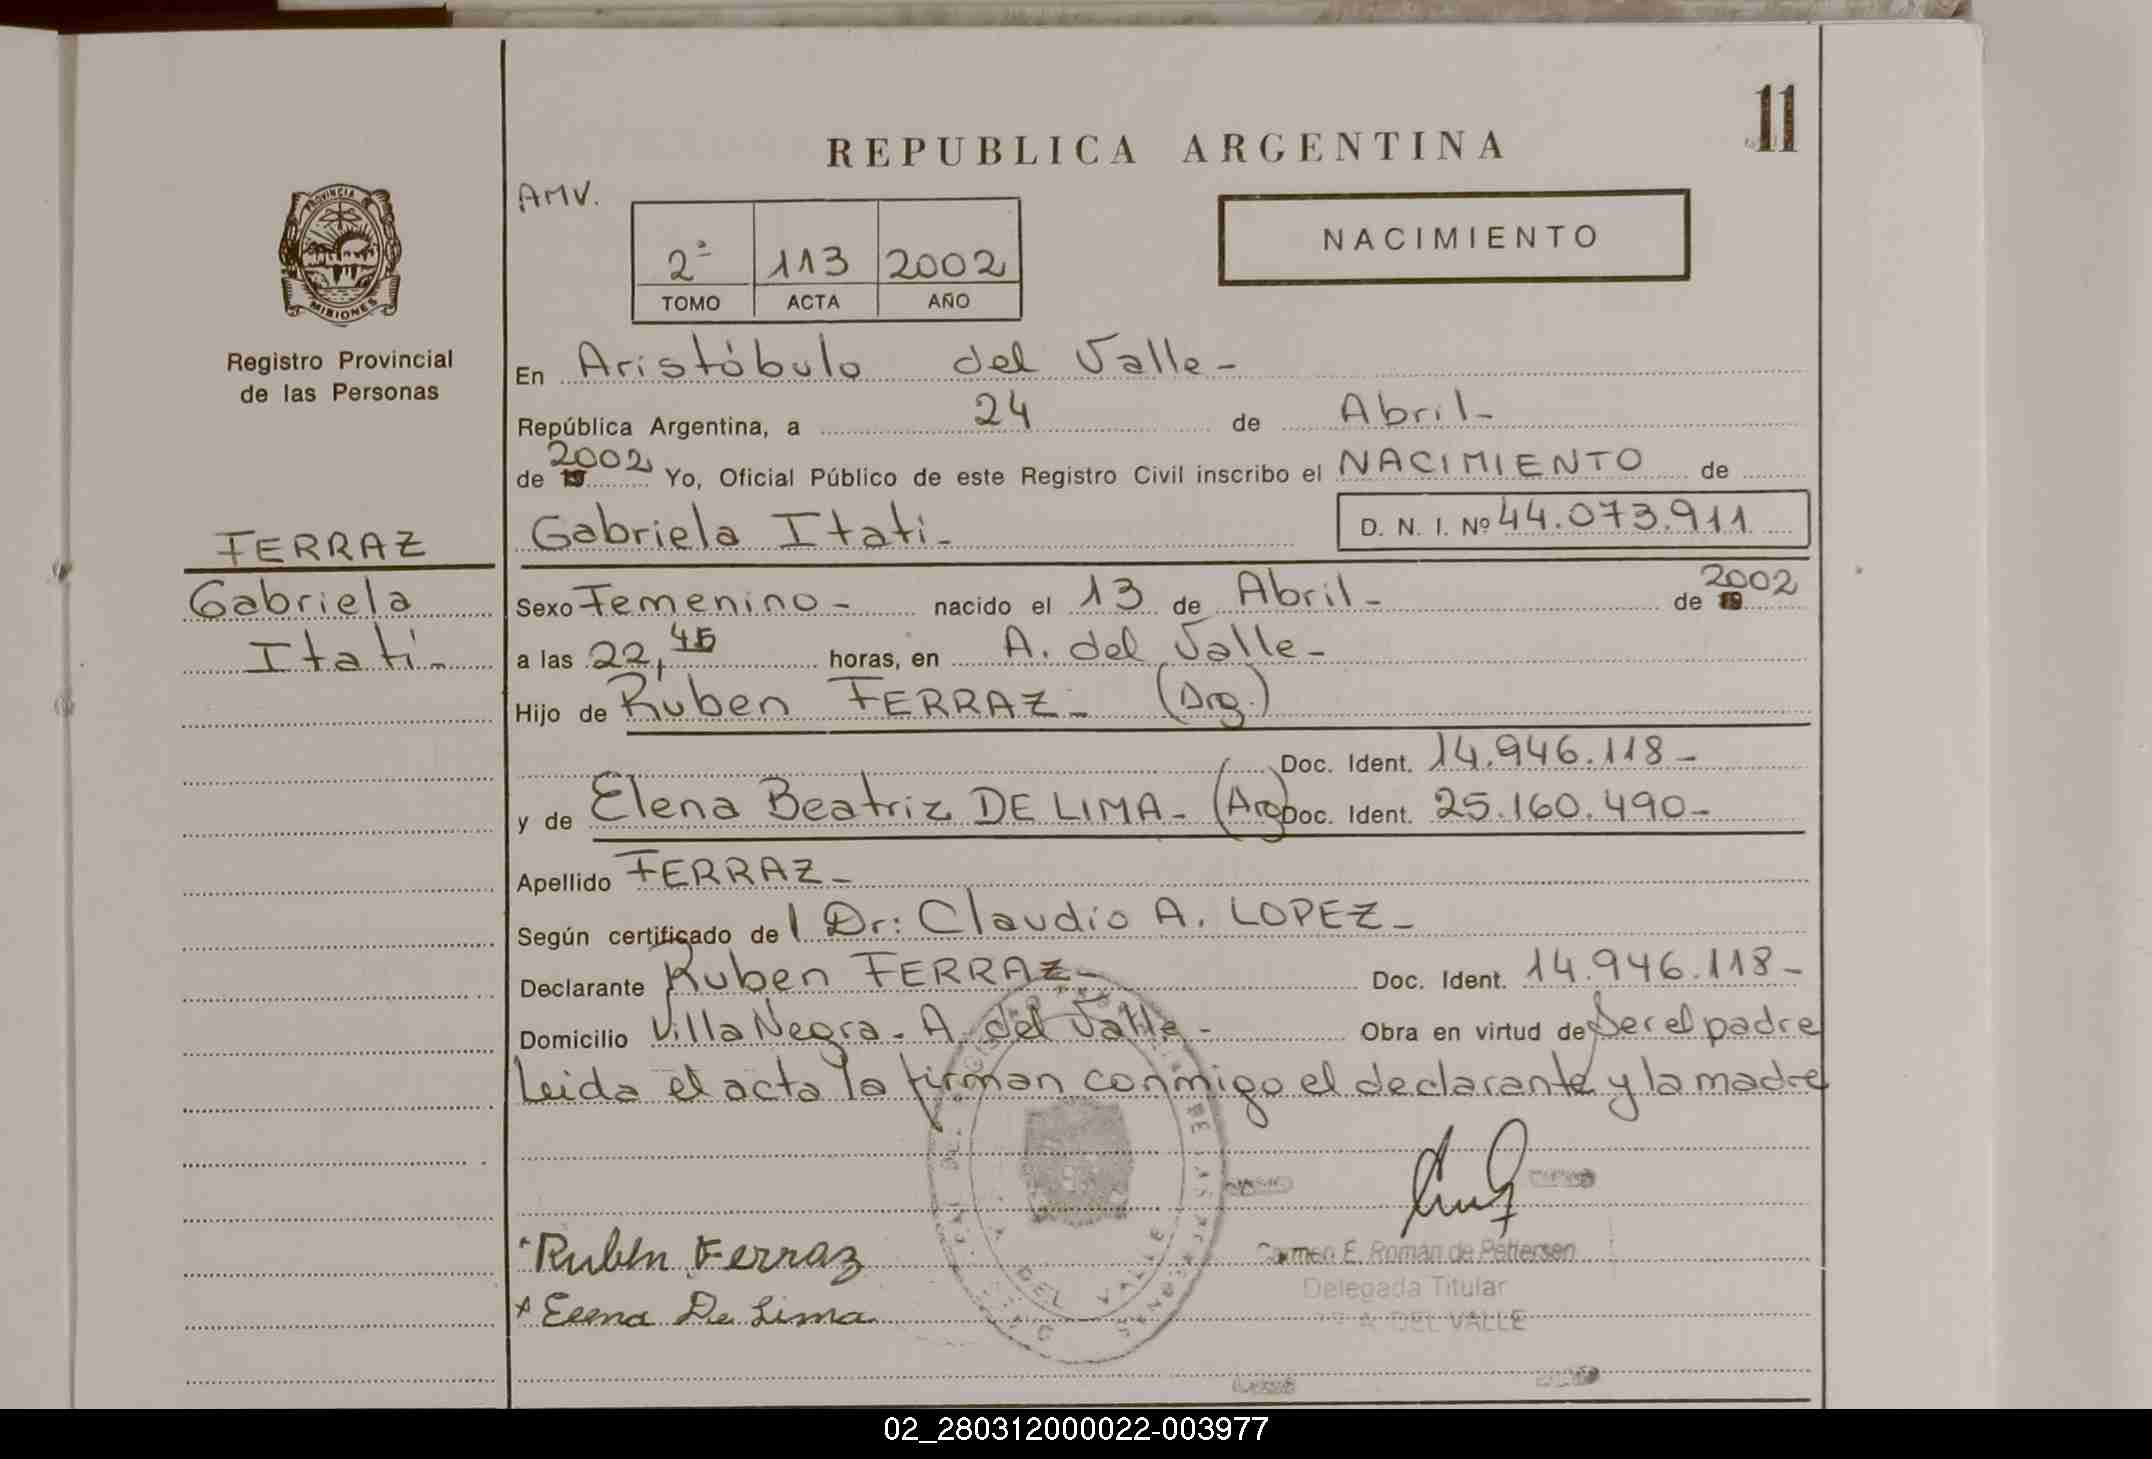 11
REPUBLICA ARGENTINA
AMV.
NACIMIENTO
2ª 113 2002
TOMO ACTA AÑO
PROVINCIA
MISIONES
Registro Provincial
de las Personas
En Aristóbulo del Valle-
República Argentina, a 24 de Abril-
de 2002 Yo, Oficial Público de este Registro Civil inscribo el NACIMIENTO de
FERRAZ
Gabriela Itati-
D. N. I. Nº 44.073.911
Gabriela
Itati-
Sexo Femenino- nacido el 13 de Abril- de 2002
a las 22,45 horas, en A. del Valle-
Hijo de Ruben FERRAZ- (Arg.)
Doc. Ident. 14.946.118-
y de Elena Beatriz DE LIMA- (Arg) Doc. Ident. 25.160.490-
Apellido FERRAZ-
Según certificado de Dr: Claudio A. LOPEZ-
Declarante Ruben FERRAZ- Doc. Ident. 14.946.118-
Domicilio Villa Negra- A. del Valle- Obra en virtud de Ser el padre
Leida el acta la firman conmigo el declarante y la madre
Ruben Ferraz
Carmen E. Román de Pettersen
Delegada Titular
A. DEL VALLE
x Elena De Lima
02_280312000022-003977